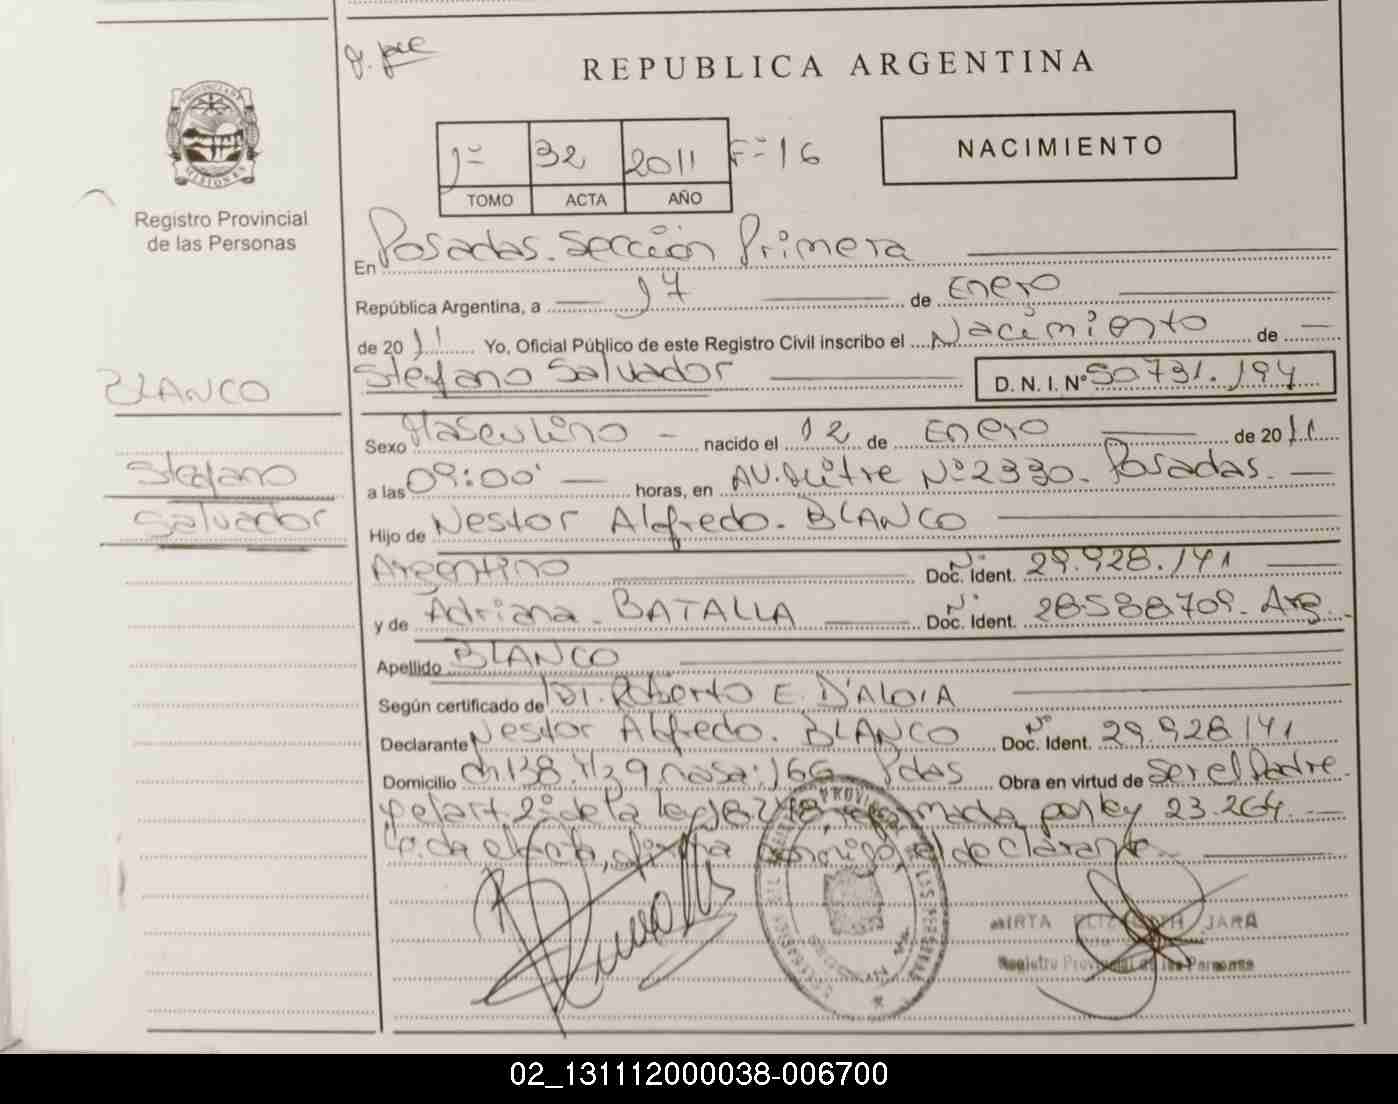 REPUBLICA ARGENTINA
1º 32 2011 Fº 16
TOMO ACTA AÑO
NACIMIENTO
PROVINCIA DE
MISIONES
Registro Provincial
de las Personas
En Posadas. Sección Primera
República Argentina, a 17 de Enero
de 2011 Yo, Oficial Público de este Registro Civil inscribo el Nacimiento de
Stefano Salvador D. N. I. Nº 50731.194
BLANCO
Stefano
Salvador
Sexo Masculino nacido el 12 de Enero de 2011
a las 09:00 horas, en AV. Mitre Nº 2330. Posadas.
Hijo de Nestor Alfredo. BLANCO
Argentino Nº Doc. Ident. 29.928.141
y de Adriana. BATALLA Nº Doc. Ident. 28588709. Arg.
Apellido BLANCO
Según certificado de Dr. Roberto E. D'ALOIA
Declarante Nestor Alfredo. BLANCO Nº Doc. Ident. 29.928.141
Domicilio ch.138. casa: 166 Pdas Obra en virtud de Ser el Padre
y el art. 2º de la ley 18.248 por ley 23.264.
Leida el acta, firma conmigo, el declarante.
MIRTA ELIZABETH JARA
Registro Provincial de las Personas
02_131112000038-006700